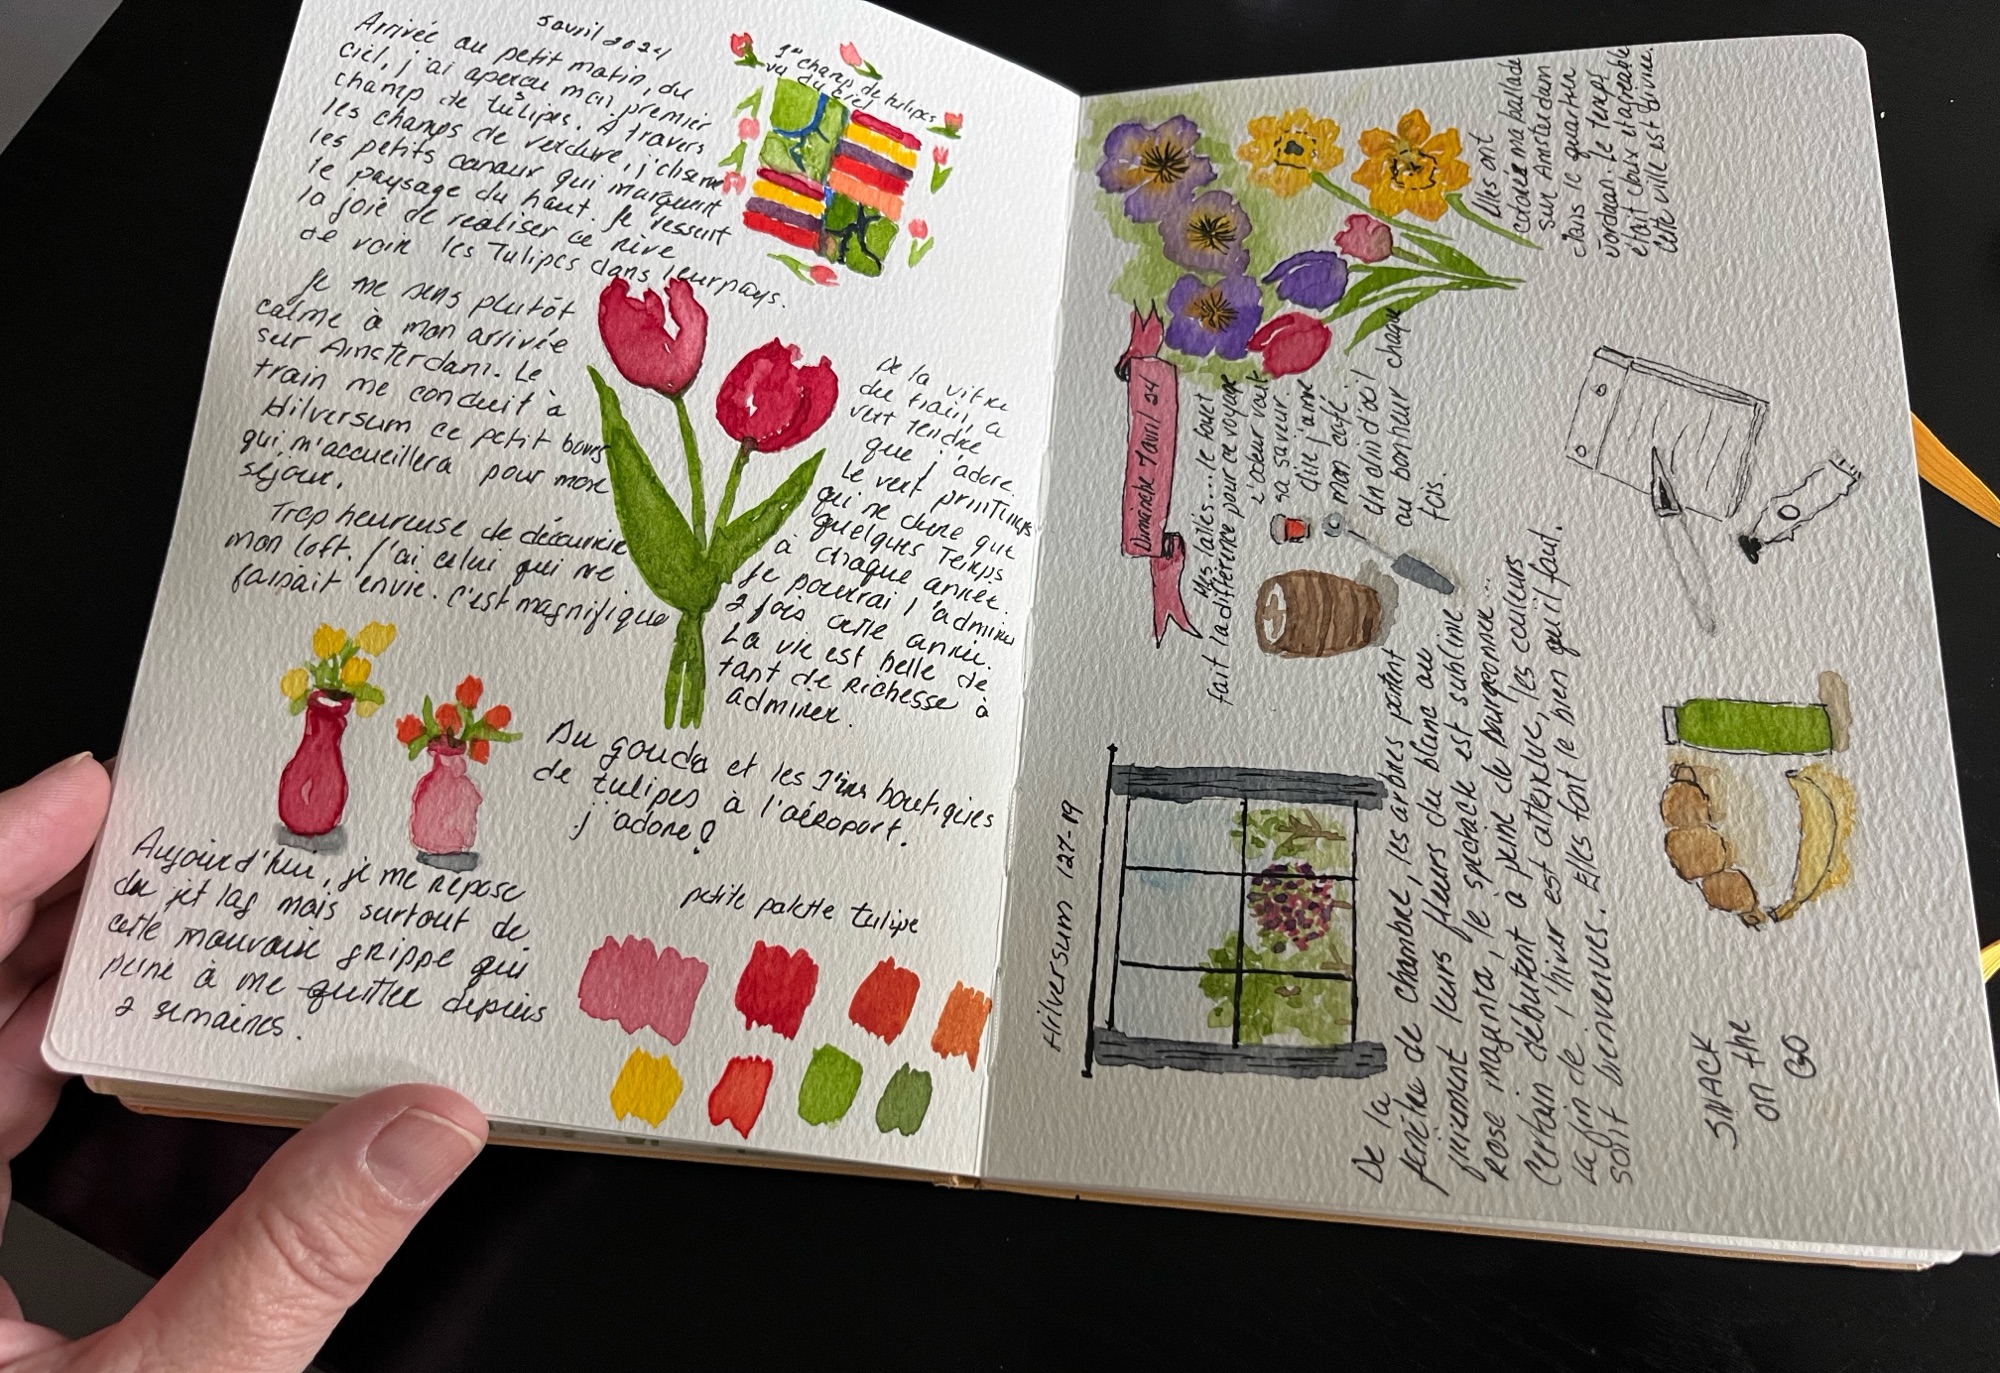 5 avril 2024
Arrivée au petit matin, du
ciel, j'ai aperçu mon premier
champ de tulipes. À travers
les champs de verdure, j'
les petits canaux qui marquent
le paysage du haut. Je ressent
la joie de realiser ce rêve
de voir les Tulipes dans leur pays.
1er champ de tulipes
vu du ciel
Je me sens plutôt
calme à mon arrivée
sur Amsterdam. Le
train me conduit à
Hilversum ce petit bourg
qui m'accueillera pour mon
séjour.
Trop heureuse de découvrir
mon loft. J'ai celui qui me
faisait envie. C'est magnifique
De la vitre
du train, a
vert tendre
que j'adore.
Le vert printemps
qui ne dure que
quelques Temps
à chaque année.
Je pourrai l'admirer
2 fois cette année.
La vie est belle de
tant de Richesse à
admirer.
Du gouda et les 1ères boutiques
de tulipes à l'aéroport.
j'adore!
Aujourd'hui, je me repose
du jet lag mais surtout de
cette mauvaise grippe qui
peine à me quitter depuis
2 semaines.
petite palette tulipe
Elles ont
coloré ma ballade
sur Amsterdam
dans le quartier
Jordaan. Le temps
était doux et agréable
cette ville est divine.
Dimanche 7 avril 24
Mes lattés... le fouet
fait la différence pour ce voyage
L'odeur vaut
sa saveur.
Que j'aime
mon café.
Un clin d'œil
au bonheur chaque
fois.
Hilversum 127-19
De la
fenêtre de chambre, les arbres portent
fièrement leurs fleurs du blanc au
rose magenta, le spectacle est sublime
Certain débutent à peine de bourgeonner...
La fin de l'hiver est attendue, les couleurs
sont bienvenues. Elles font le bien qu'il faut.
SNACK
on the
GO